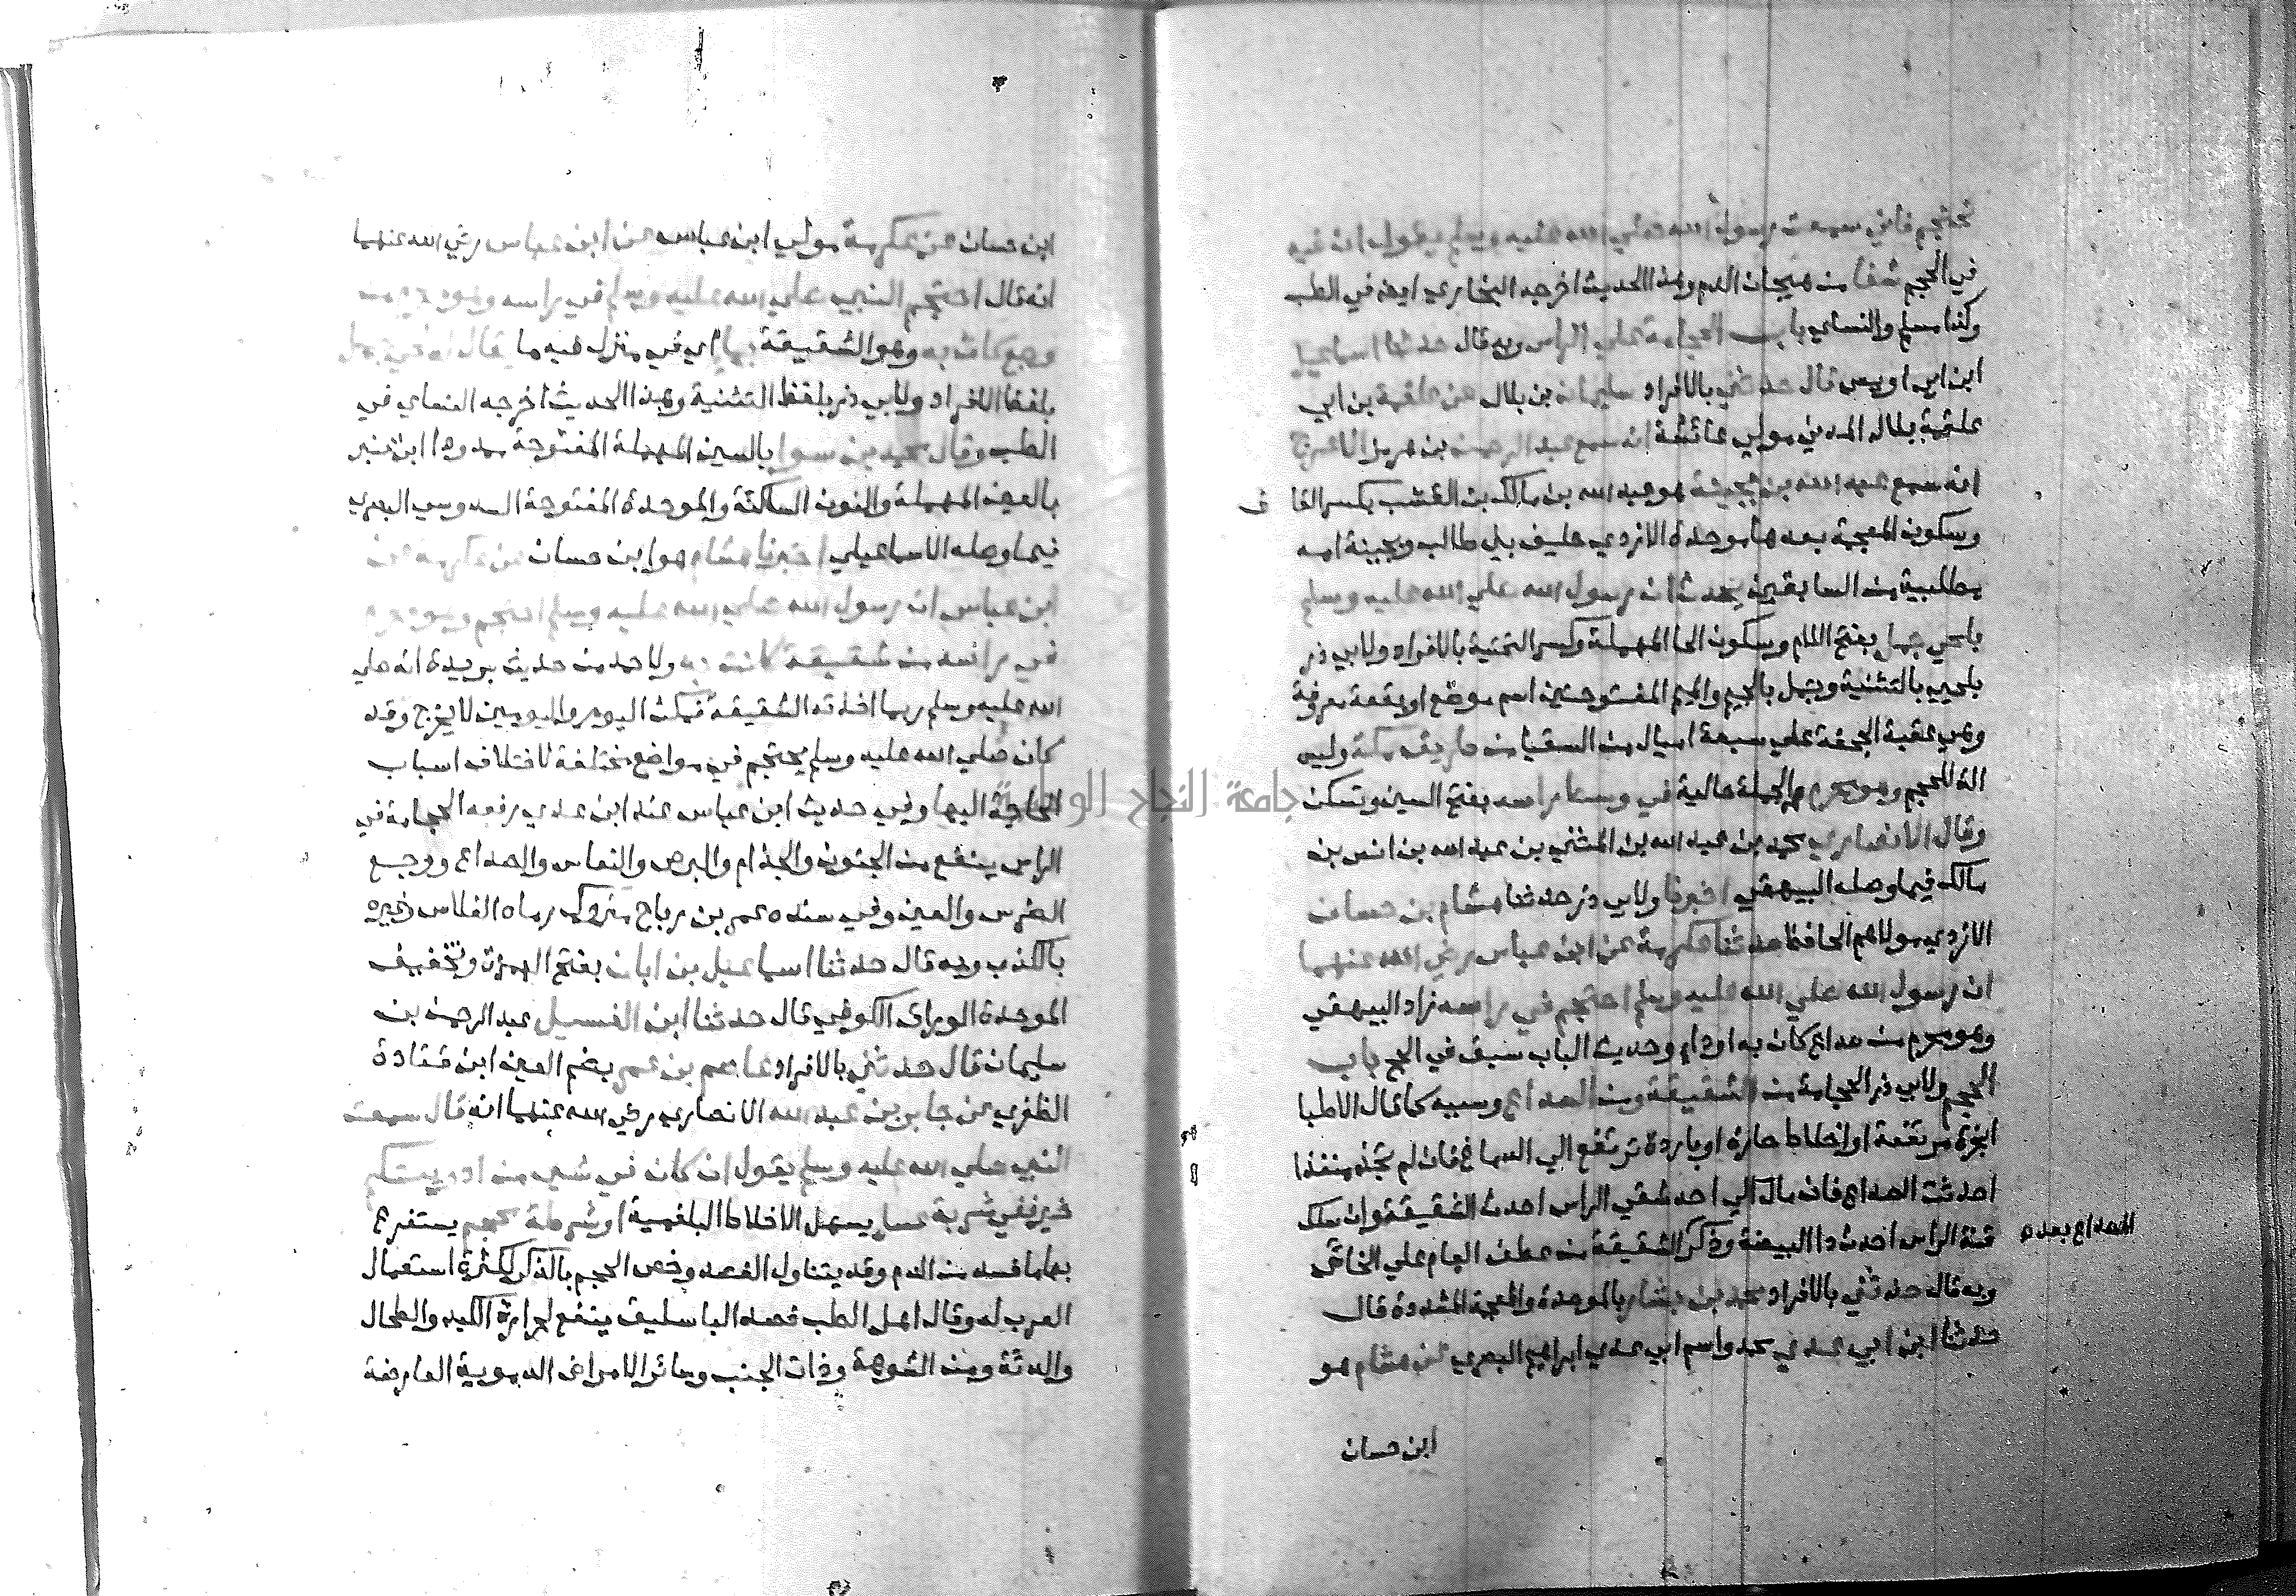 تحتجم فاني سمعت رسول الله صلي الله عليه وسلم يقول ان فيه
في الحجم شفا من هيجان الدم وهذا الحديث اخرجه البخاري ايضا في الطب
وكذا مسلم والنساي باب الحجامة علي الراس وبه قال حدثنا اسماعيل
ابن ابي اويس قال حدثني بالافراد سليمان بن بلال عن علقمة بن ابي
علقمة بلال المدني مولي عائشة انه سمع عبد الرحمن بن هرمز الاعرج
انه سمع عبد الله بن بحينة هو عبد الله بن مالك بن القشب بكسر القا ف
وسكون المعجمة بعدها موحدة الازدي حليف بني طالب وبحينة امه
مطلبية من السابقين يحدث ان رسول الله صلي الله عليه وسلم
بلحي جمل بفتح اللام وسكون الحا المهملة وكسر التحتية بالافراد ولابي ذر
بلحيي بالتثنية وبجمل بالجيم والميم المفتوحتين اسم موضع او بقعة معروفة
وهي عقبة الجحفة علي سبعة اميال من السقيا من طريق مكة وليس
الة للحجم وهو محرم والجملة حالية في وسط راسه بفتح السين وتسكن
وقال الانصاري محمد بن عبد الله بن المثني بن عبد الله بن انس بن
مالك فيما وصله البيهقي اخبرنا ولابي ذر حدثنا هشام بن حسان
الازدي مولاهم الحافظ حدثنا عكرمة عن ابن عباس رضي الله عنهما
ان رسول الله صلي الله عليه وسلم احتجم في راسه زاد البيهقي
وهو محرم من صداع كان به او داء وحديث الباب سبق في الحج باب
الحجم ولابي ذر الحجامة من الشقيقة ومن الصداع وسببه كما قال الاطبا
ابخرة مرتفعة او اخلاط حارة او باردة ترتفع الي الدماغ فان لم تجد منفذا
احدثت الصداع فان مال الي احد شقي الراس احدث الشقيقة وان ملك
قنة الراس احدث دا البيضة وذكر الشقيقة من عطف العام علي الخاص
الصداع بعده
وبه قال حدثني بالافراد محمد بن بشار بالموحدة والمعجمة المشددة قال
حدثنا ابن ابي عدي محمد واسم ابي عدي ابراهيم البصري عن هشام هو
ابن حسان
ابن حسان عن عكرمة مولي ابن عباس عن ابن عباس رضي الله عنهما
انه قال احتجم النبي صلي الله عليه وسلم في راسه وهو محرم من
وجع كان به وهو الشقيقة بما اي في منزل فيه ما يقال له لحي جمل
بلفظ الافراد ولابي ذر بلفظ التثنية وهذا الحديث اخرجه النساي في
الطب وقال محمد بن سوا بالسين المهملة المفتوحة ممدودا ابن عنبر
بالعين المهملة والنون الساكنة والموحدة المفتوحة السدوسي البصري
فيما وصله الاسماعيلي اخبرنا هشام هو ابن حسان عن عكرمة عن
ابن عباس ان رسول الله صلي الله عليه وسلم احتجم وهو محرم
في راسه من شقيقة كانت به ولاحمد من حديث بريدة انه صلي
الله عليه وسلم ربما اخذته الشقيقة فيمكث اليوم واليومين لا يخرج وقد
كان صلي الله عليه وسلم يحتجم في مواضع مختلفة لاختلاف اسباب
الحاجة اليها وفي حديث ابن عباس عند ابن عدي رفعه الحجامة في
الراس ينفع من الجنون والجذام والبرص والنعاس والصداع ووجع
الضرس والعين وفي سنده عمر بن رباح متروك رماه الفلاس وغيره
بالكذب وبه قال حدثنا اسماعيل بن ابان بفتح الهمزة وتخفيف
الموحدة الوراق الكوفي قال حدثنا ابن الغسيل عبد الرحمن بن
سليمان قال حدثني بالافراد عاصم بن عمر بضم العين ابن قتادة
الظفري عن جابر بن عبد الله الانصاري رضي الله عنهما انه قال سمعت
النبي صلي الله عليه وسلم يقول ان كان في شي من ادويتكم
خير ففي شربة عسل يسهل الاخلاط البلغمية او شرطة محجم يستفرغ
بها ما فسد من الدم وقد يتناول الفصد وخص الحجم بالذكر لكثرة استعمال
العرب له وقال اهل الطب فصد الباسليق ينفع لحرارة الكبد والطحال
والرئة ومن الشوصة وذات الجنب وسائر الامراض الدموية العارضة
جامعة النجاح الوطنية